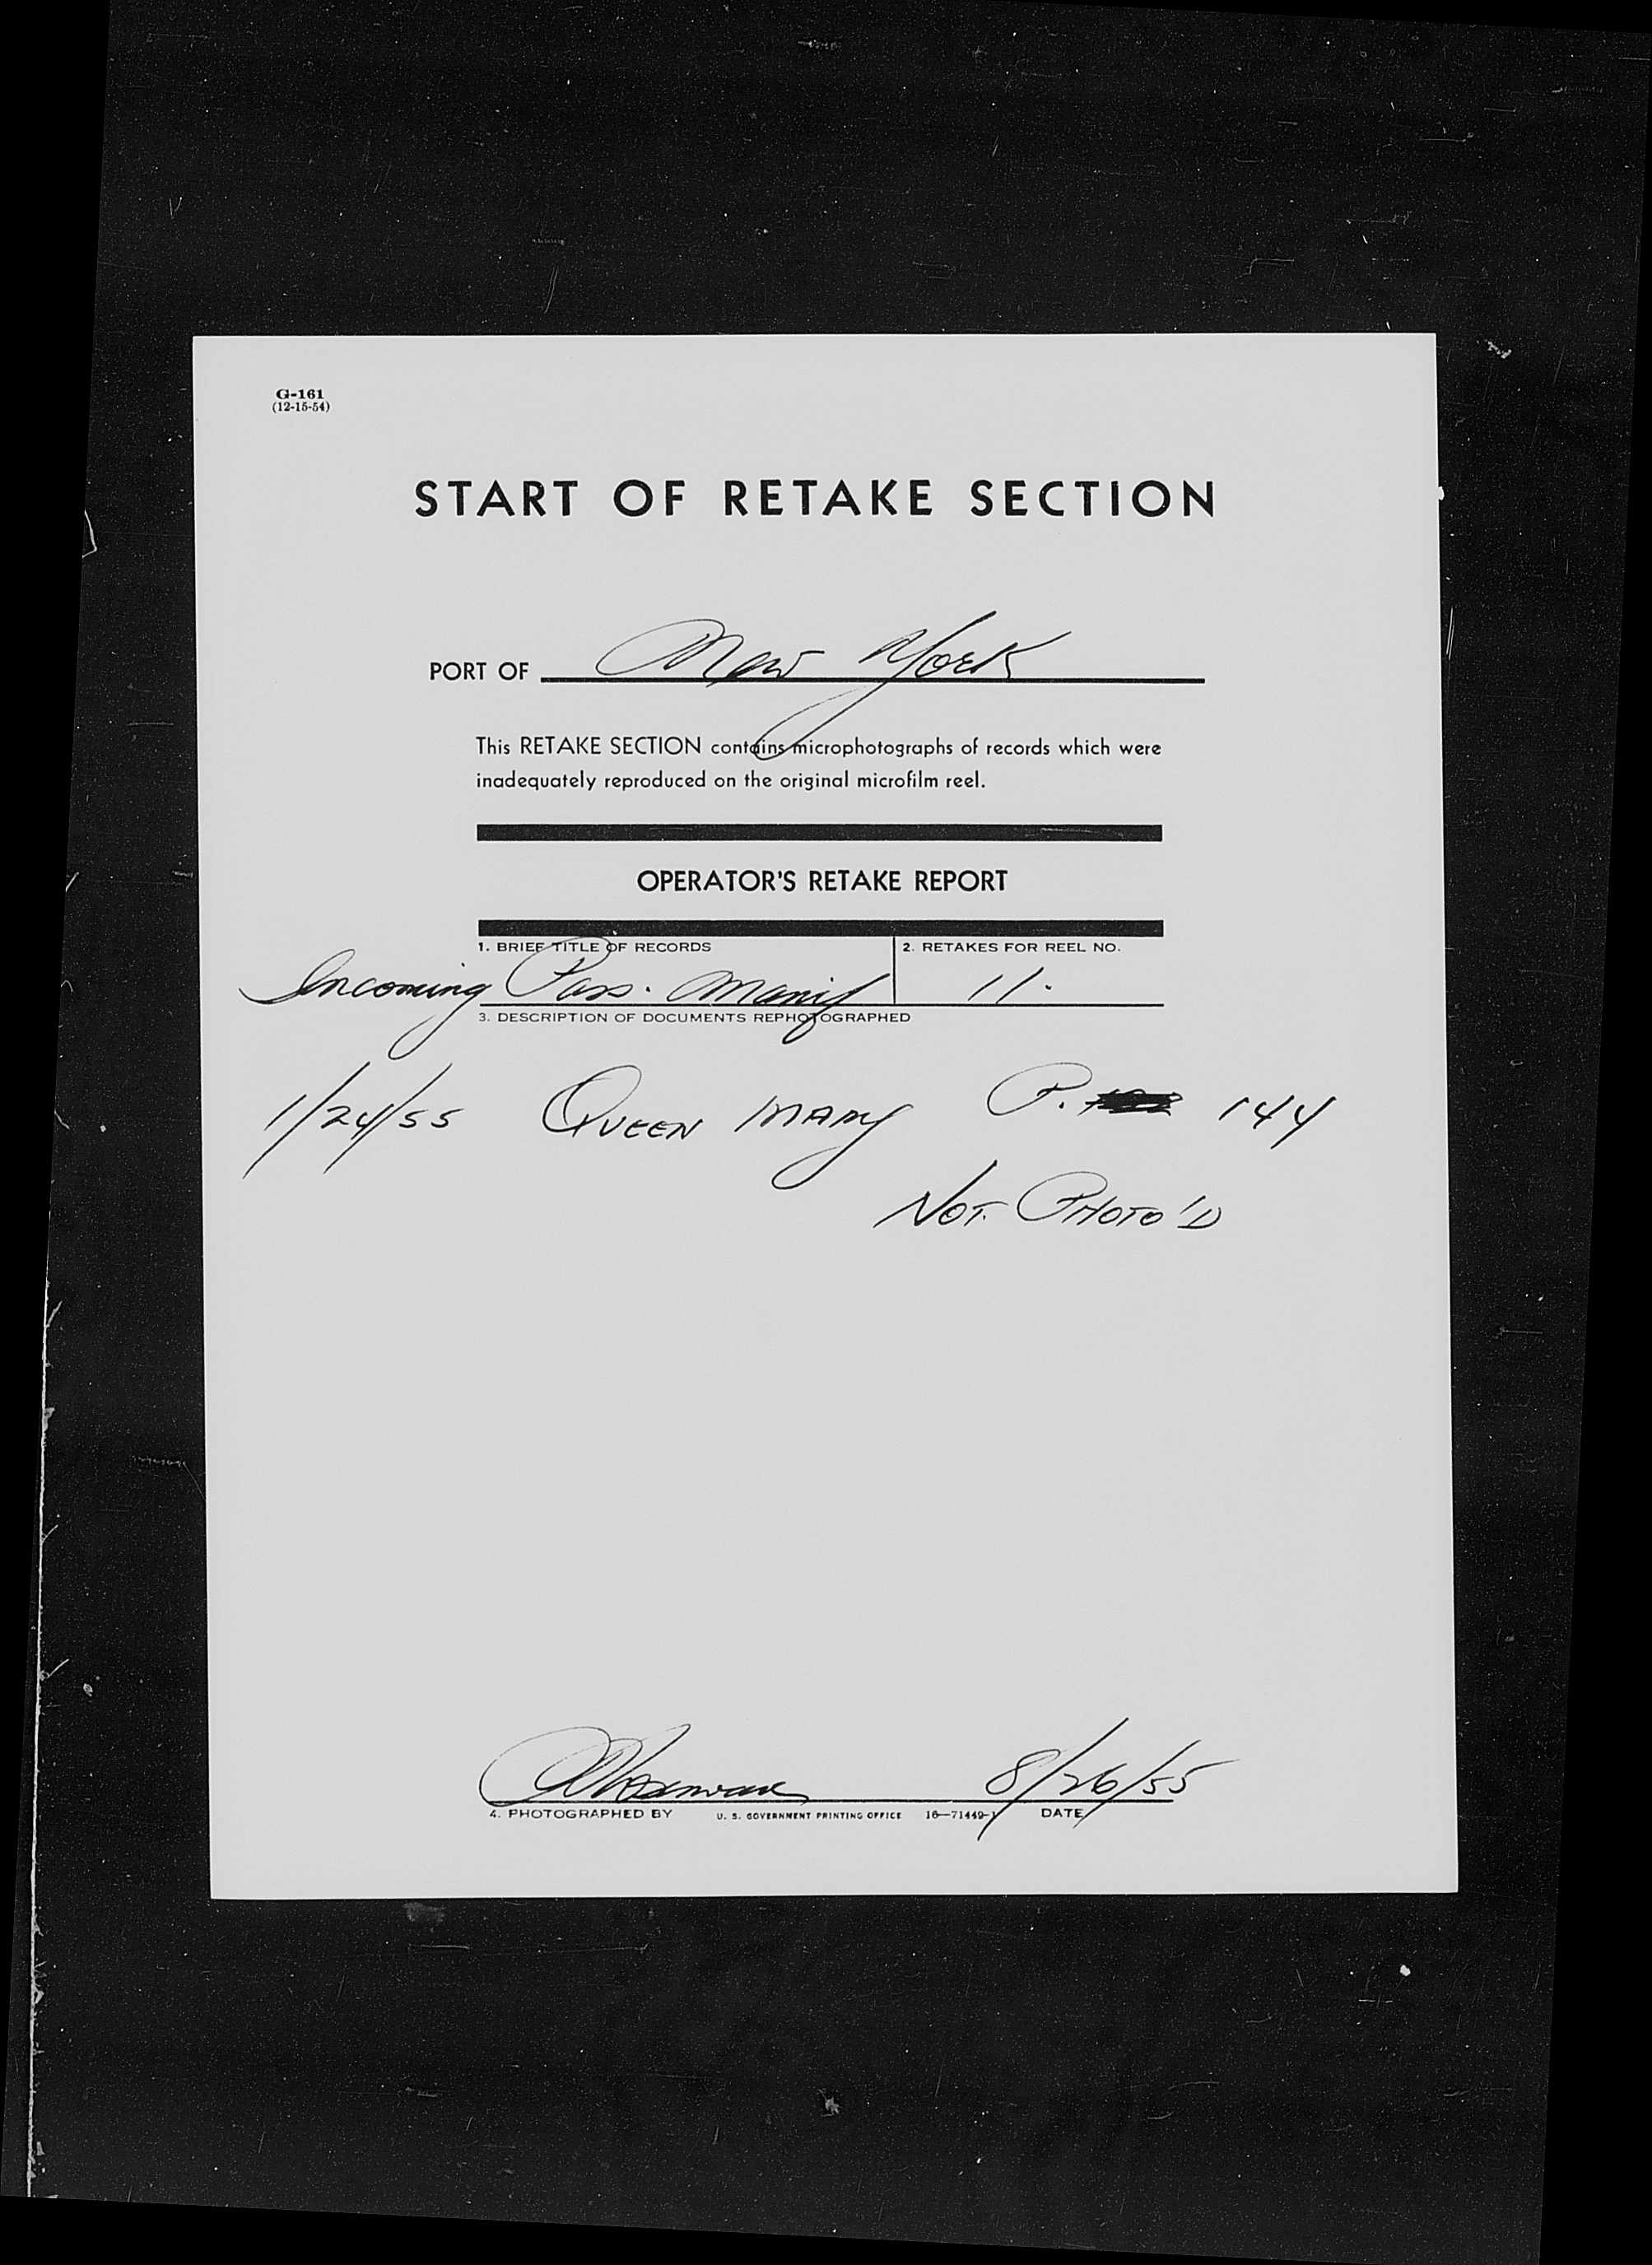 G-161
(12-15-54)
START OF RETAKE SECTION
PORT OF New York
This RETAKE SECTION contains microphotographs of records which were
inadequately reproduced on the original microfilm reel.
OPERATOR'S RETAKE REPORT
1. BRIEF TITLE OF RECORDS 2. RETAKES FOR REEL NO.
Incoming Pass. Manif 11.
3. DESCRIPTION OF DOCUMENTS REPHOTOGRAPHED
1/24/55 QUEEN MARY P. 144
NOT PHOTO'D
8/26/55
4. PHOTOGRAPHED BY U. S. GOVERNMENT PRINTING OFFICE 16—71449-1 DATE